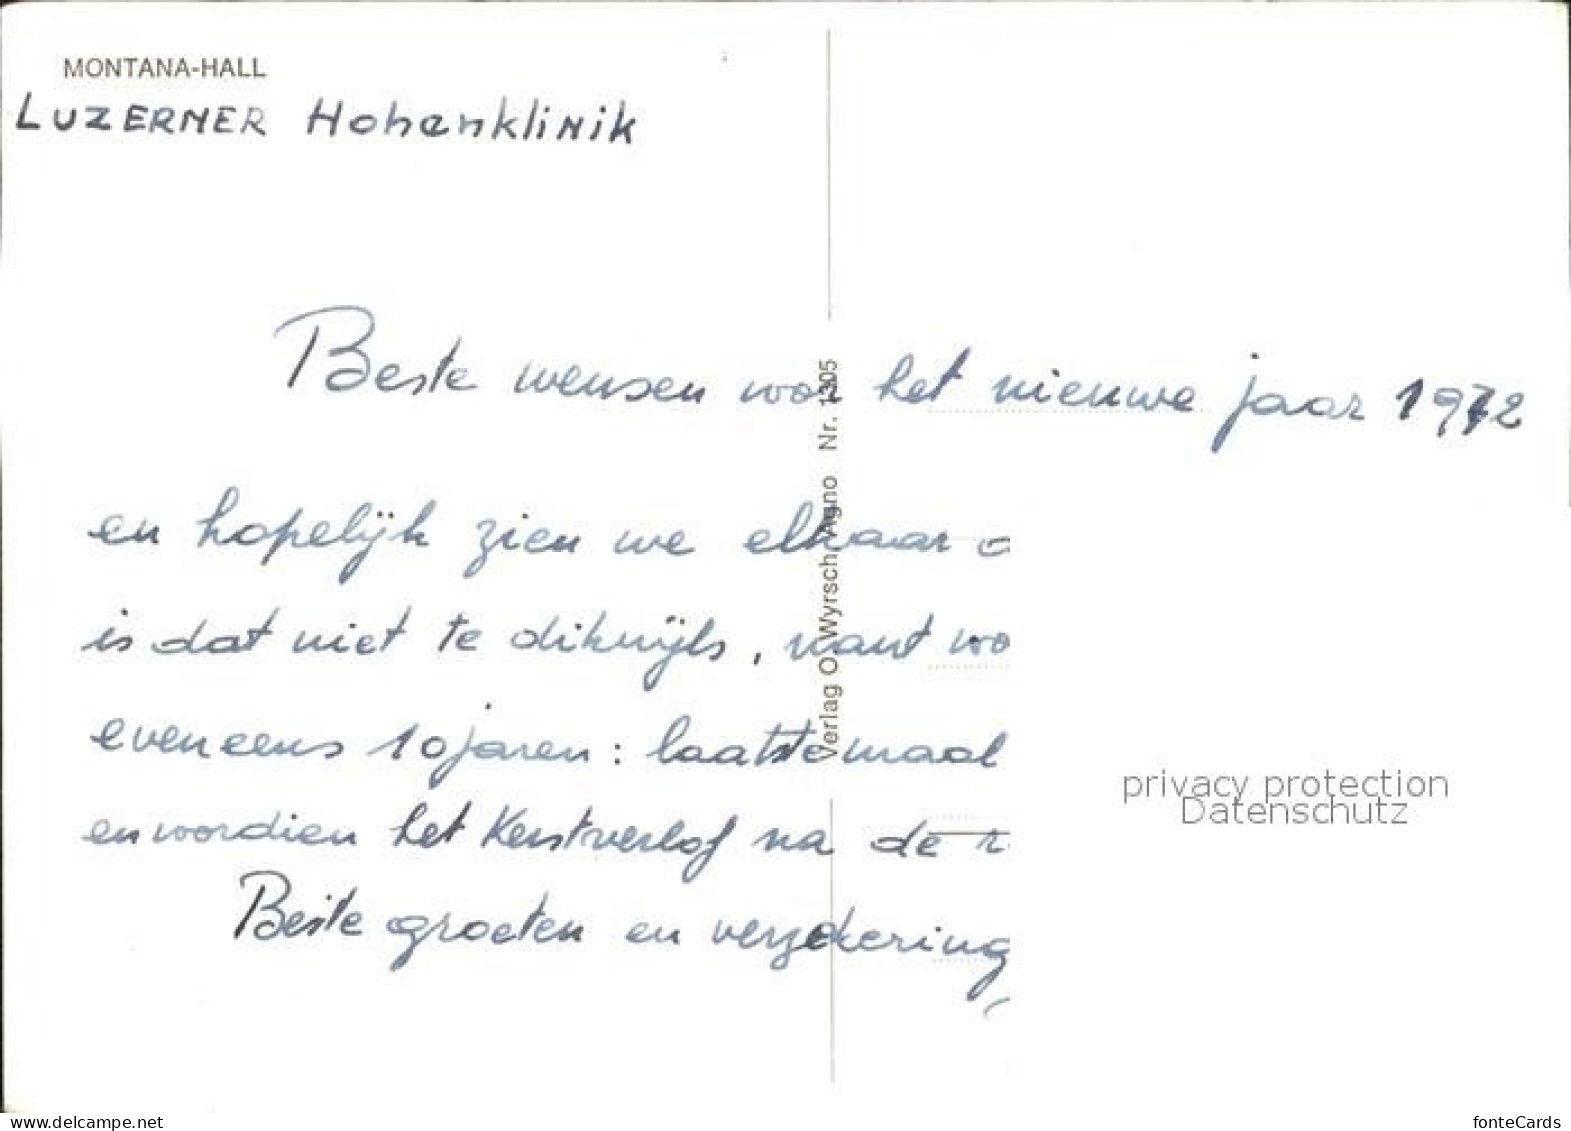 MONTANA-HALL
LUZERNER Hohenklinik
Beste wensen voor het nieuwe jaar 1972
en hopelijk zien we elkaar
is dat niet te dikwijls, want
eveneens 10 jaren: laatstemaal
en wordien het Kerstverlof na de
Beste groeten en verzekering
Verlag O. Wyrsch, Agno Nr. 1305
privacy protection
Datenschutz
www.delcampe.net
fonteCards